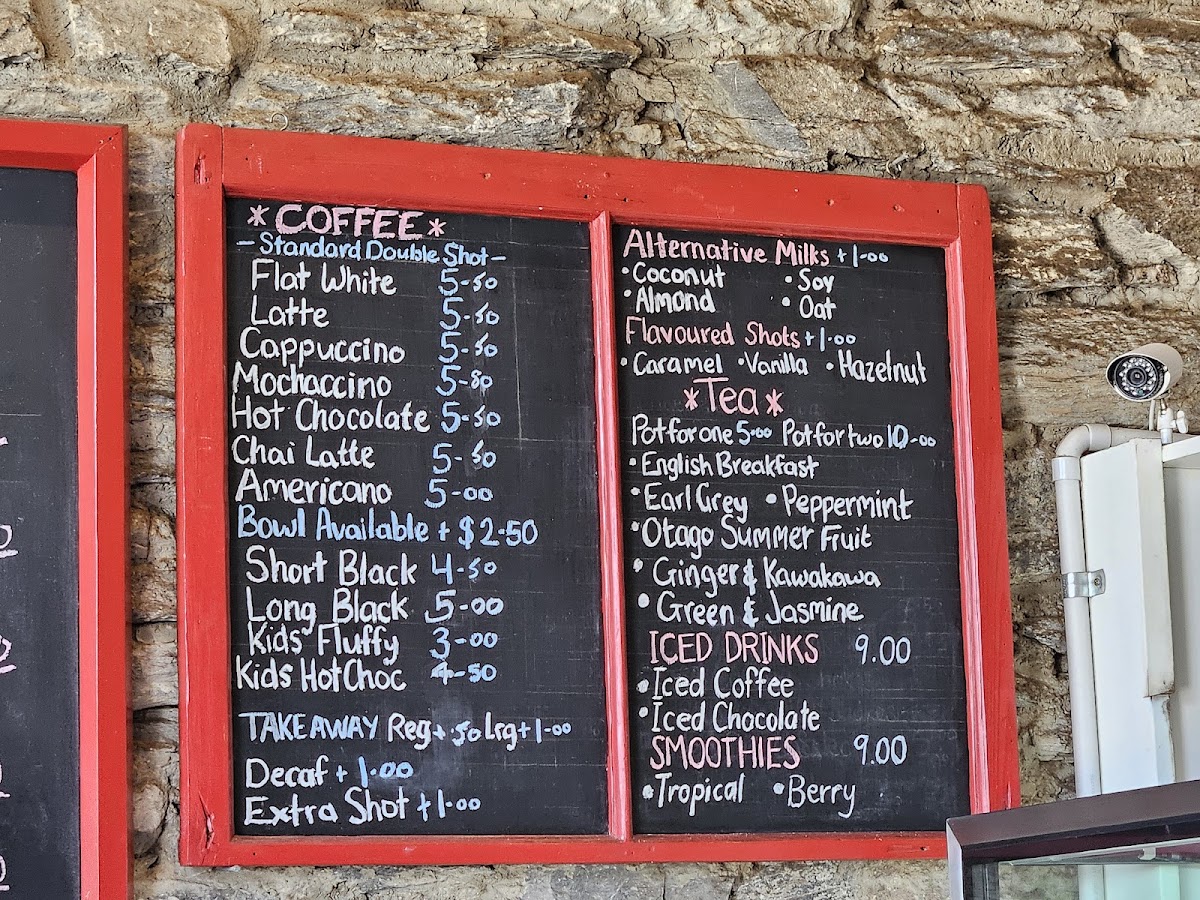 *COFFEE*
- Standard Double Shot -
Flat White 5-50
Latte 5-50
Cappuccino 5-50
Mochaccino 5-50
Hot Chocolate 5-50
Chai Latte 5-50
Americano 5-00
Bowl Available + $2-50
Short Black 4-50
Long Black 5-00
Kids Fluffy 3-00
Kids Hot Choc 4-50
TAKEAWAY Reg + .50 Lrg + 1-00
Decaf + 1.00
Extra Shot + 1-00
Alternative Milks + 1-00
• Coconut • Soy
• Almond • Oat
Flavoured Shots + 1-00
• Caramel • Vanilla • Hazelnut
*Tea*
Pot for one 5-00 Pot for two 10-00
• English Breakfast
• Earl Grey • Peppermint
• Otago Summer Fruit
• Ginger & Kawakawa
• Green & Jasmine
ICED DRINKS 9.00
• Iced Coffee
• Iced Chocolate
SMOOTHIES 9.00
• Tropical • Berry